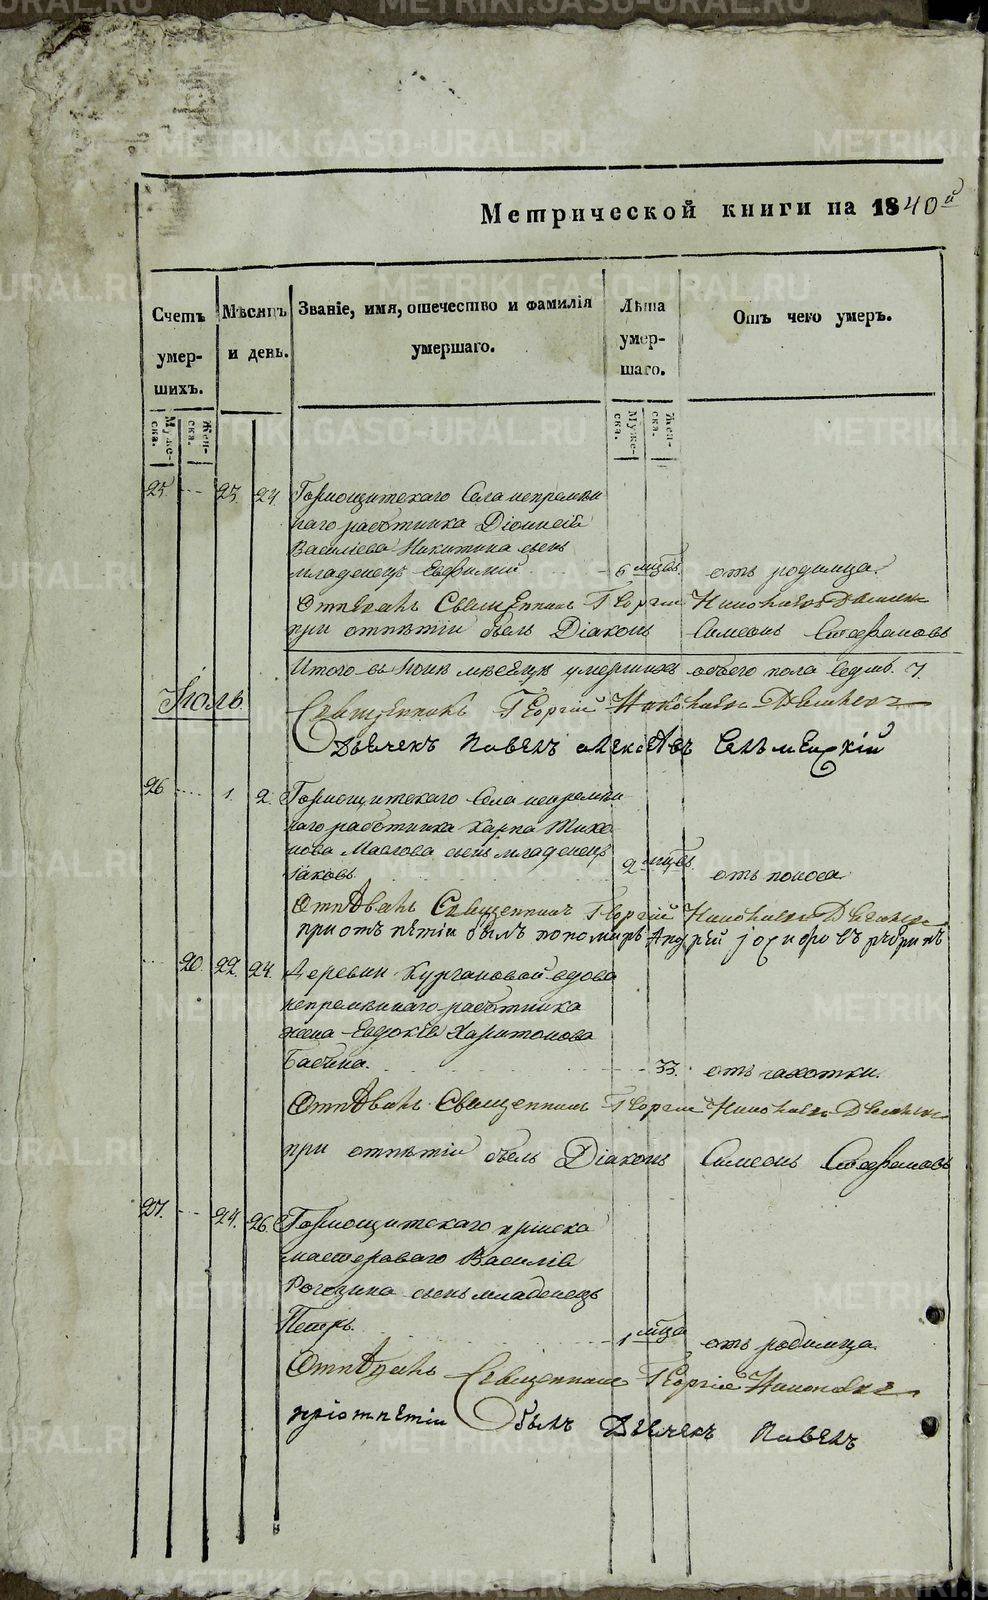 METRIKI.GASO-URAL.RU
Метрической книги на 1840й
Счетъ умершихъ.
Мѣсяцъ и день.
Званіе, имя, отечество и фамилія умершаго.
Лѣта умершаго.
Отъ чего умеръ.
Мужеска. Женска.
Мужеска. Женска.
25. 23. 24. Горнощитскаго Села непремѣн
наго работника Діонисія
Василіева Никитина сынъ
младенецъ Евфимій 6 мцвъ отъ родимца.
Отпѣвалъ Священникъ Георгій
при отпѣтіи былъ Діаконъ Симеонъ Стефановъ
Итого въ Іюнѣ мѣсяцѣ умершихъ обоего пола седмь. 7
Іюль.
Священникъ Георгій
Дьячекъ Павелъ
26 1. 2. Горнощитскаго Села непремѣн
наго работника Карпа Тихо
нова Маслова сынъ младенецъ
Іаковъ 2 мцвъ. отъ поноса
Отпѣвалъ Священникъ Георгій
при отпѣтіи былъ пономарь Андрей
20. 22. 24. Деревни Кургановой вдова
непремѣннаго работника
жена Евдокія Харитонова
Бабина. 33. отъ чахотки.
Отпѣвалъ Священникъ Георгій
при отпѣтіи былъ Діаконъ Симеонъ Стефановъ
27. 24. 26. Горнощитскаго пріиска
мастероваго Василія
Рогозина сынъ младенецъ
Петръ. 1 мца отъ родимца.
Отпѣвалъ Священникъ Георгій
при отпѣтіи былъ Дьячекъ Павелъ